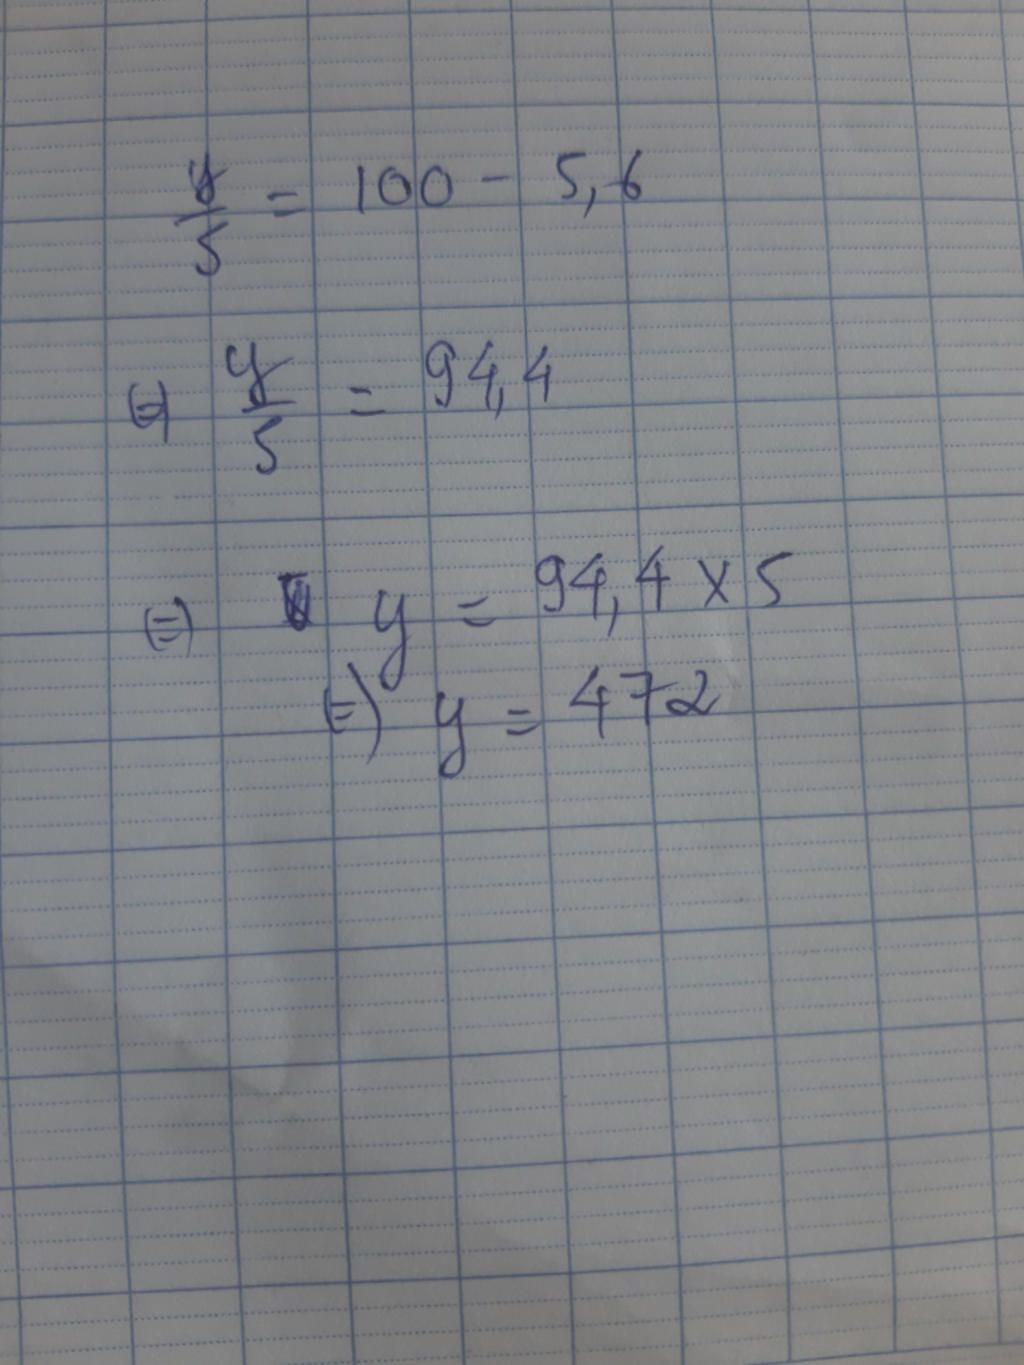 y/5 = 100 - 5,6
(=) y/5 = 94,4
(=) y = 94,4 x 5
(=) y = 472